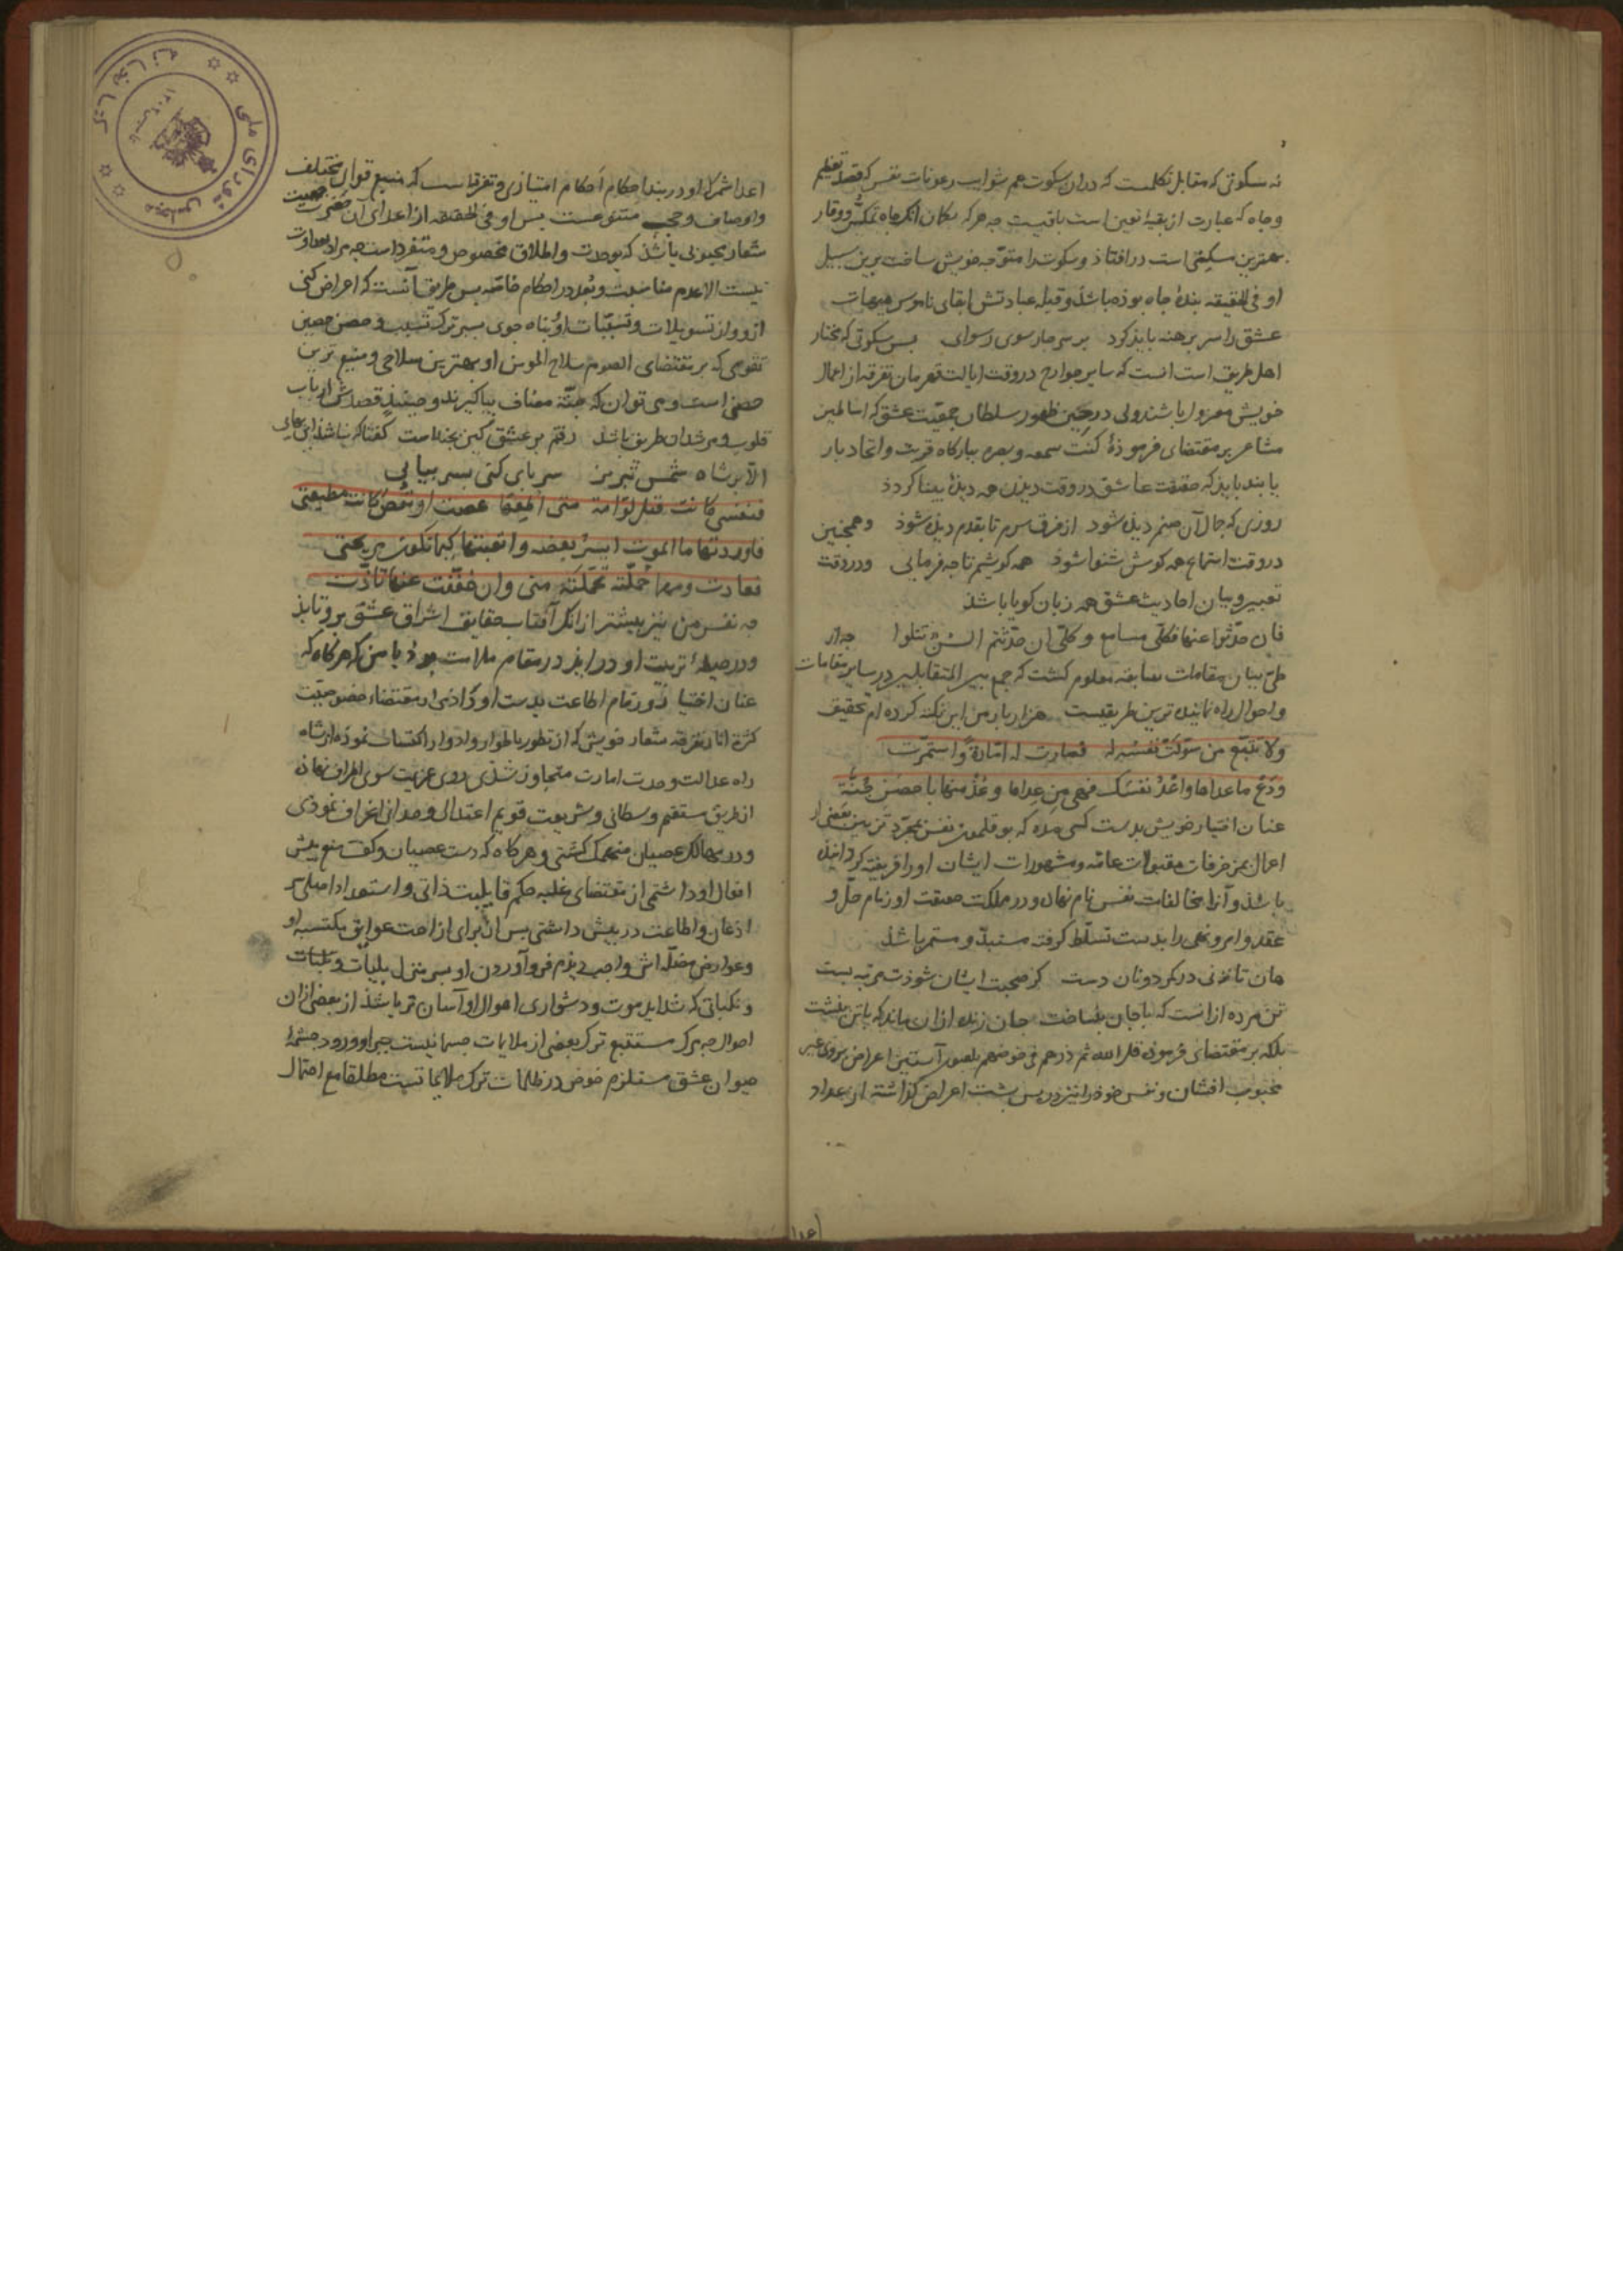 نه سکوتی که مقابل تکلمست که در ان سکوت هم شوایب رعونات نفس که قصد تعظیم
و جاه که عبارت ازبقیه تعین است باقیست چه هرکه بکان انک جاه تمکن و وقار
بهترین سکینی است درافتاذ و سکوت را متوجه خویش ساخت برین سبیل
او فی الحقیقه بنده جاه بوذه باشذ و قبله عبادتش ابقای ناموس هیهات
عشق را سر برهنه بایذ کرد بر سر چار سوی رسوای بس سکوتی که مختار
اهل طریق است انست که سایر جوارح در وقت ایالت قهرمان تفرقه از اعمال
خویش معزول باشند ولی در حین ظهور سلطان جمعیت عشق که اساطین
مشاعر بر مقتضای فرموذه کنت سمعه و بصره ببارکاه قربت و اتحاد بار
یابند بایذ که حقیقت عاشق در وقت دیذن همه دیذه بینا کردذ
روزی که جمال آن صنم دیذه شوذ از فرق سرم تا بقدم دیذه شوذ وهمچنین
در وقت استماع همه کوش شنوا شوذ همه کوشیم تا چه فرمایی و در وقت
تعبیر و بیان احادیث عشق همه زبان کویا باشذ
فان حدثوا عنها فکلی مسامع و کلی ان حدثتهم السن تتلوا چه از
طی بیان مقامات سابقه معلوم کشت که جمع بین المتقابلین در سایر مقامات
و احوال راه نماینده ترین طریقیست هزار بار من این نکته کرده ام تحقیق
ولا تتبع من سولت نفسه له فصارت له امارة و استمرت
ودع ما عداها واعد نفسک فهی من عداها وعذ منها باحصن جنة
عنان اختیار خویش بدست کسی مده که بوقلمون نفس بمجرد تزیین بعضی از
اعمال بمزخرفات مقبولات عامه و مشهورات ایشان اورا فریفته کردانیذه
باشذ و آنرا مخالفات نفس نام نهاذه و در مملکت حقیقت او زمام حل و
عقد و امر و نهی را بدست تسلط کرفته مستبد و مستمر باشذ
هان تا نزنی در کمر دونان دست کز صحبت ایشان شوذت مرتبه پست
تن مرده ازانست که با جان بنساخت جان زنده ازان ماند که با تن ننشست
بلکه بر مقتضای فرموذه قل الله ثم ذرهم فی خوضهم یلعبون آستین اعراض بر روی غیر
محبوب افشان و نفس خوذ را نیز در پس پشت اعراض کذاشته از عداد
اعدا شمر که او در بند احکام احکام امتیازی و تفرقه است که منبع قوای مختلف
و اوصاف و حجب متنوعست پس او فی الحقیقه از اعدای آن حضرت جمعیت
شعار محبوبی باشذ که بوحدت و اطلاق مخصوص و متفرد است چه مراد بعداوت
نیست الا عدم مناسبت و بعد در احکام خاصه پس طریق آنست که اعراض کنی
ازو و از تسویلات و تسبیبات او و پناه جوی بسپر ترک تسبب و حصن حصین
تقوی که بر مقتضای الصوم سلاح المومن او بهترین سلاحی و منیع ترین
حصنی است و می توان که جنة مضاف بها کیرند و حینئذ قصدش ارباب
قلوب و مرشدان طریق باشد رفتم بر عشق کین بنده است کفتا که نباشذ این بهای
الا بر شاه شمس تبریز سر پای کنی بسر بیایی
فنفسی کانت قبل لوامة متی اطعها عصت او تعص کانت مطیعتی
فاوردتها ما الموت ایسر بعضه و اتعبتها کیما تکون مریحتی
فعادت و مهما حملته تحملته منی وان خففت عنها تاذت
چه نفس من نیز پیشتر از انک آفتاب حقایق اشراق عشق برو تابذ
و در حیطه تربیت او در ایذ در مقام ملامت بوذ با من که هر کاه که
عنان اختیار و زمام اطاعت بدست او دادمی او بمقتضاء خصوصیت
کثرة اثار تفرقه شعار خویش که از تطور باطوار و ادوار اکتساب نموذه از شاه
راه عدالت وحدت امارت متجاوز شذی روی عزیمت سوی اطراف نهاذه
از طریق مستقیم وسطانی و شریعت قویم اعتدال وحدانی انحراف نموذی
و در مهالک عصیان منهمک کشتی و هرکاه که دست عصیان و کف منع پیش
افعال او داشتمی از مقتضای غلبه حکم قابلیت ذاتی و استعداد اصلی سر
اذعان و اطاعت در پیش داشتی پس از برای ازاحت عوایق مکتسبه او
و عوارض مضله اش واجب دیذم فرو آوردن او بسر منزل بلیات و نکبات
و نکباتی که شداید موت و دشواری اهوال او آسان تر باشذ از بعضی ازان
احوال چه مرک مستتبع ترک بعضی از ملایمات جسمانیست جبرا و ورود چشمه
حیوان عشق مستلزم خوض در ظلمات ترک ملایماتست مطلقا مع احتمال